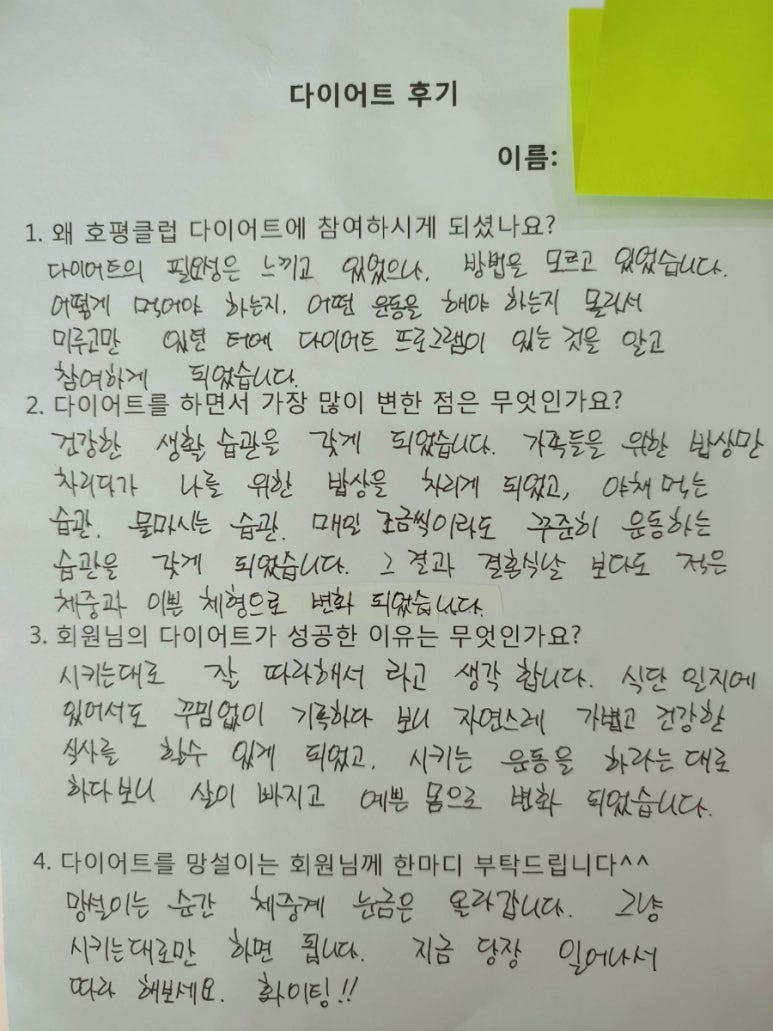 다이어트 후기
이름:
1. 왜 호평클럽 다이어트에 참여하시게 되셨나요?
다이어트의 필요성은 느끼고 있었으나, 방법을 모르고 있었습니다.
어떻게 먹어야 하는지, 어떤 운동을 해야 하는지 몰라서
미루고만 있던 터에 다이어트 프로그램이 있는 것을 알고
참여하게 되었습니다.
2. 다이어트를 하면서 가장 많이 변한 점은 무엇인가요?
건강한 생활 습관을 갖게 되었습니다. 가족들을 위한 밥상만
차리다가 나를 위한 밥상을 차리게 되었고, 야채 먹는
습관, 물마시는 습관, 매일 조금씩이라도 꾸준히 운동하는
습관을 갖게 되었습니다. 그 결과 결혼식날 보다도 적은
체중과 이쁜 체형으로 변화 되었습니다.
3. 회원님의 다이어트가 성공한 이유는 무엇인가요?
시키는대로 잘 따라해서 라고 생각 합니다. 식단 일지에
있어서도 꾸밈없이 기록하다 보니 자연스레 가볍고 건강한
식사를 할수 있게 되었고, 시키는 운동을 하라는 대로
하다보니 살이 빠지고 예쁜 몸으로 변화 되었습니다.
4. 다이어트를 망설이는 회원님께 한마디 부탁드립니다^^
망설이는 순간 체중계 눈금은 올라갑니다. 그냥
시키는대로만 하면 됩니다. 지금 당장 일어나서
따라 해보세요. 화이팅!!